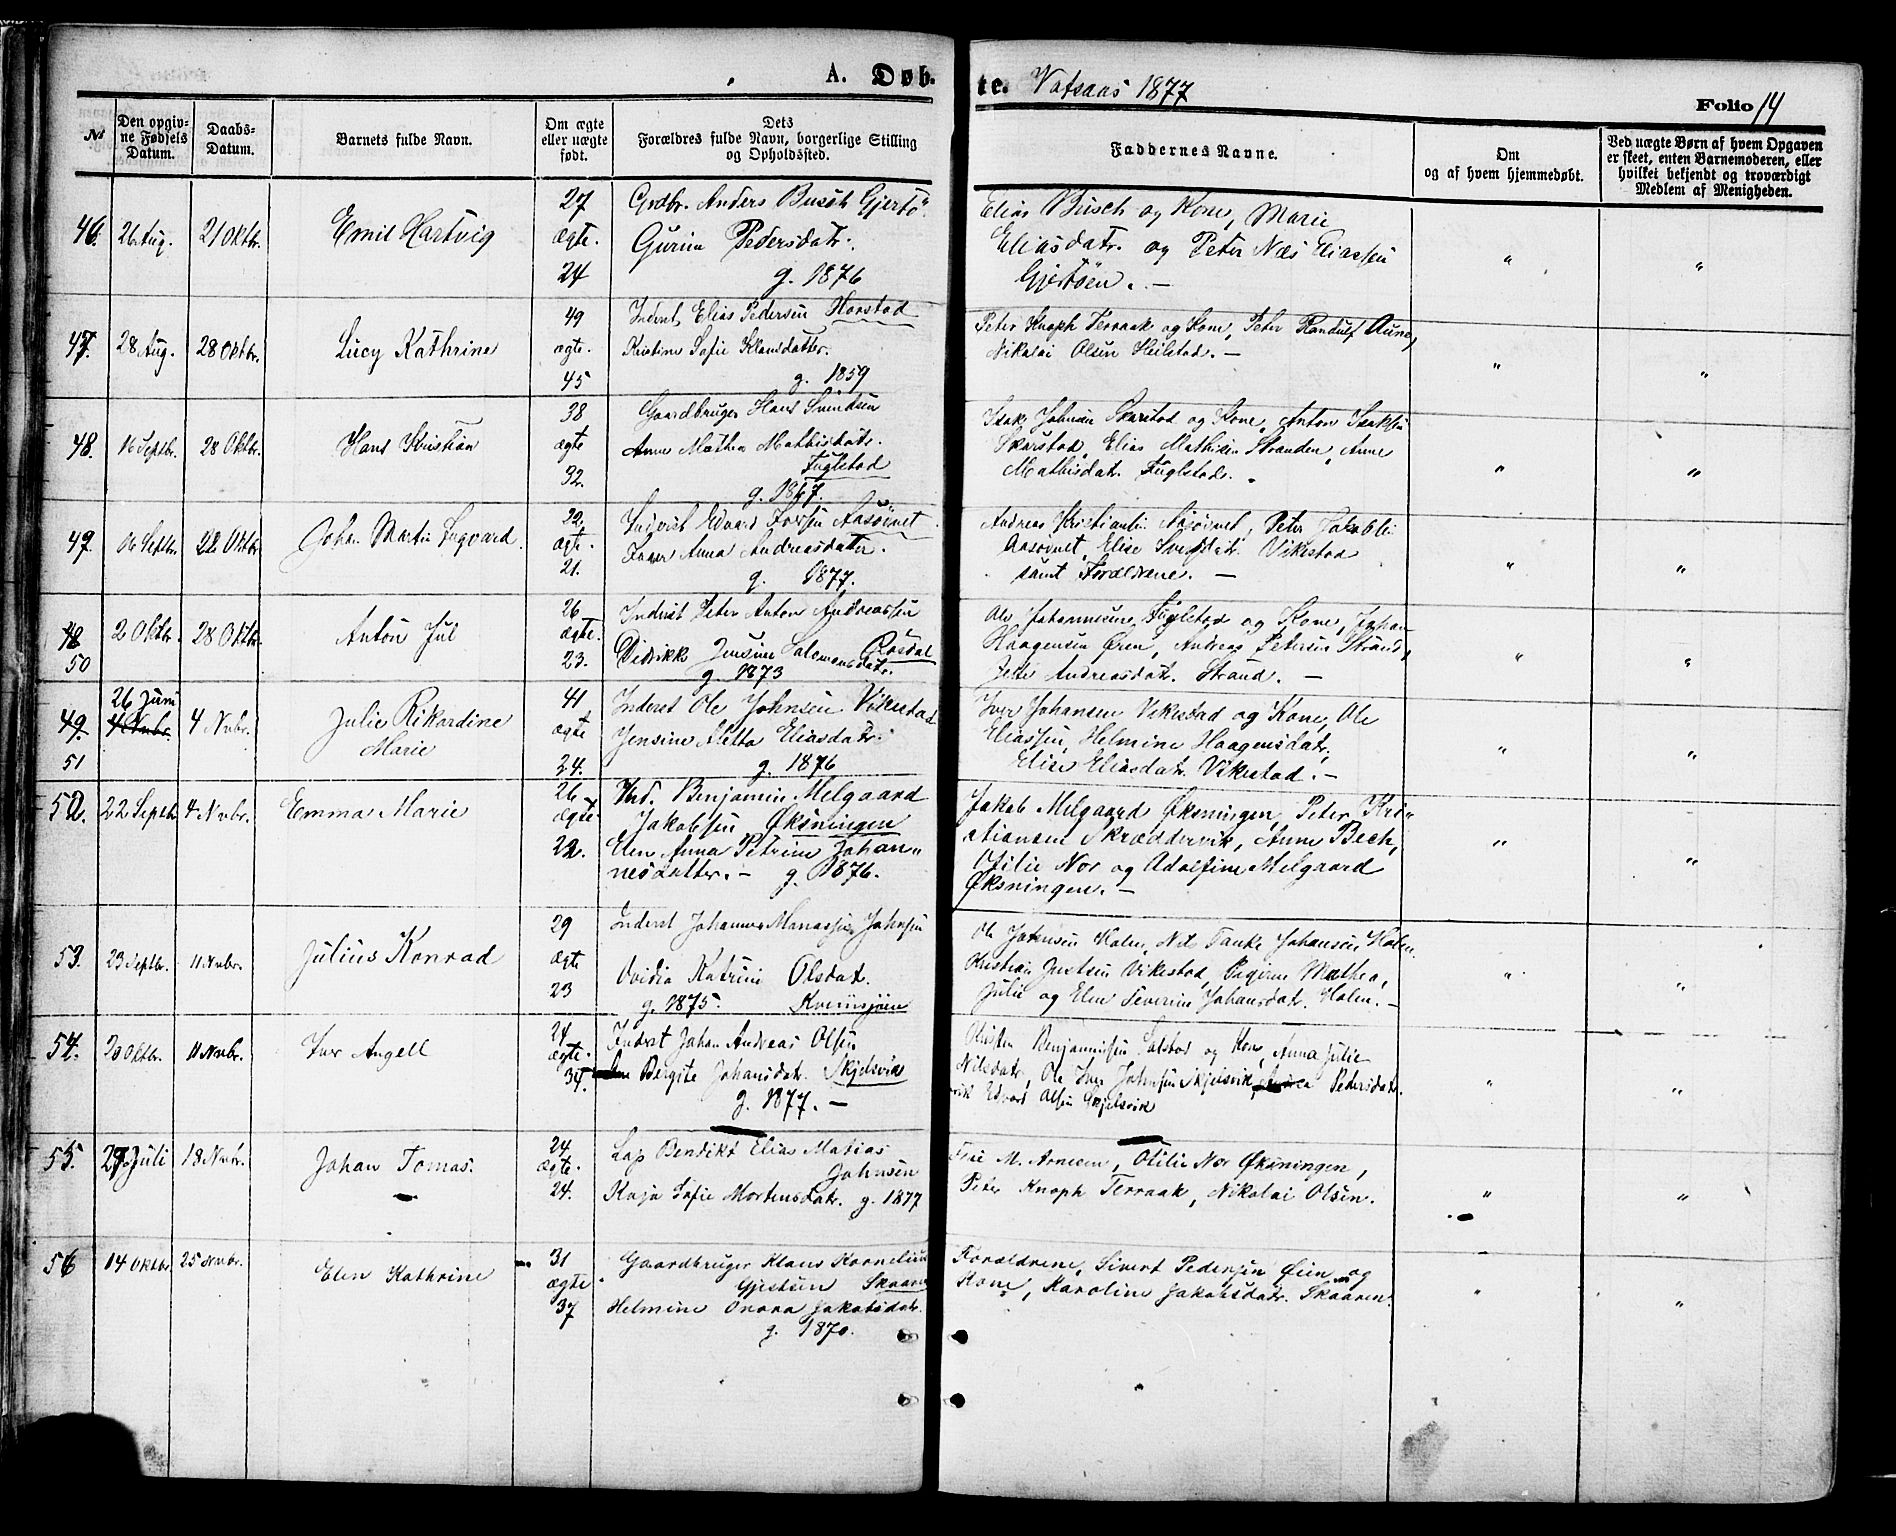 A. Døb-
te. Vatsaas 1877
Folio 14
No
Den opgiv-
ne Fødsels
Datum.
Daabs-
Datum.
Barnets fulde Navn.
Om ægte
eller uægte
født.
Dets
Forældres fulde Navn, borgerlige Stilling
og Opholdssted.
Faddernes Navne.
Om
og af hvem hjemmedøbt.
Ved uægte Børn af hvem Opgaven
er skeet, enten Barnemoderen, eller
hvilket bekjendt og troværdigt
Medlem af Menigheden.
46. 26 Aug. 21 Oktbr. Emil Hartvig
27
ægte.
24
Grdbr. Anders Busch Gjertö
Gurine Pedersdatr.
g. 1876
Elias Busch og Kone, Marie
Eliasdatr. og Peter Næs Eliassen
Gjertöen. —
" "
47. 28 Aug. 28 Oktbr. Lucy Kathrine
49
ægte.
45
Inderst Elias Pedersen Horstad
Kristine Sofie Klausdatter.
g. 1859
Peter Knoph Terraak og Kone, Peter Randulf Aune,
Nikolai Olsen Heilstad. —
" "
48. 16 Septbr. 28 Oktbr. Hans Kristian
38
ægte
32.
Gaardbruger Hans Svendsen
Anne Mathea Mathisdatr.
Fuglstad
g. 1867.
Isak Johnsen Skarstad og Kone, Anton Isaksen
Skarstad, Elias Mathisen Stranden, Anne
Mathisdatr. Fuglstad.
" "
49. 06 Septbr. 28 Oktbr. Johan Martin Ingvard.
22.
ægte.
21.
Inderst Edvard Aasövnet
Anna Andreasdatter.
g. 1877.
Andreas Kristiansen Aasövnet, Peter
Aasövnet, Elise Vikestad
samt Forældrene. —
" "
48
50
2 Oktbr. 28 Oktbr. Anton Jul
26
ægte.
23.
Inderst Peter Anton Andreassen
Rosdal
Didrikke Jensine Salomonsdatr.
g. 1873
Ole Johannesen Fuglstad og Kone, Johan
Haagensen Øren, Andreas Petersen Strand,
Andreasdatr. Strand. —
" "
49
51
26 Juni
4 Nvbr.
4 Nvbr.
Julie Rikardine
Marie
41
ægte
24.
Inderst Ole Johnsen Vikestad
Jensine Metta Eliasdatr.
g. 1876
Iver Johansen Vikestad og Kone, Ole
Eliassen, Helmine Haagensdatr.
Elise Eliasdatr. Vikestad. —
" "
52. 22 Septb. 4 Nvbr. Emma Marie
26
ægte
22.
Ind. Benjamin Melgaard
Jakobsen Øksningen
Elen Anna Petrine Johan-
nesdatter. — g. 1876.
Jakob Melgaard Øksningen, Peter Kri-
stiansen Skræddervik, Anne Bech,
Otilie Nor og Adolfine Melgaard
Øksningen. —
" "
53. 23 Septbr. 11 Nvbr. Julius Konrad
29
ægte
23
Inderst Johannes Manassen Johnsen
Ovidia Katrine Olsdat.
g. 1875. Kvernsjöen
Ole Johnsen Holm, Nils Tanke Johansen Holm
Kristian Justsen Vikestad, Mathea,
Julie og Elen Severine Johansdatr. Holm. —
" "
54. 20 Oktbr. 11 Nvbr. Iver Angell
24
ægte.
34.
Inderst Johan Andreas Olsen
Bergite Johansdatr. Skjelsvik
g. 1877. —
Benjaminsen Salstad og Kone, Anna Julie
Nilsdatr, Ole Iver Johnsen Skjelsvik, Pedersdatr.
Edvard Olsen Skjelsvik
" "
55. 27 Juli 18 Nvbr. Johan Tomas.
24
ægte.
24.
Lap Bendikt Elias Matias
Johnsen
Kaja Sofie Mortensdatr. g. 1877
Frue M. Arnesen, Otilie Nor Øksningen,
Peter Knoph Terraak, Nikolai Olsen.
" "
56 14 Oktbr. 25 Nvbr. Elen Kathrine
31
ægte
37
Gaardbruger Klaus Kornelius
Gjertsen Skaaren
Helmine Onora Jakobsdatr.
g. 1870.
Forældrene, Sivert Pedersen Øien og
Kone, Karoline Jakobsdatr. Skaaren.
" "